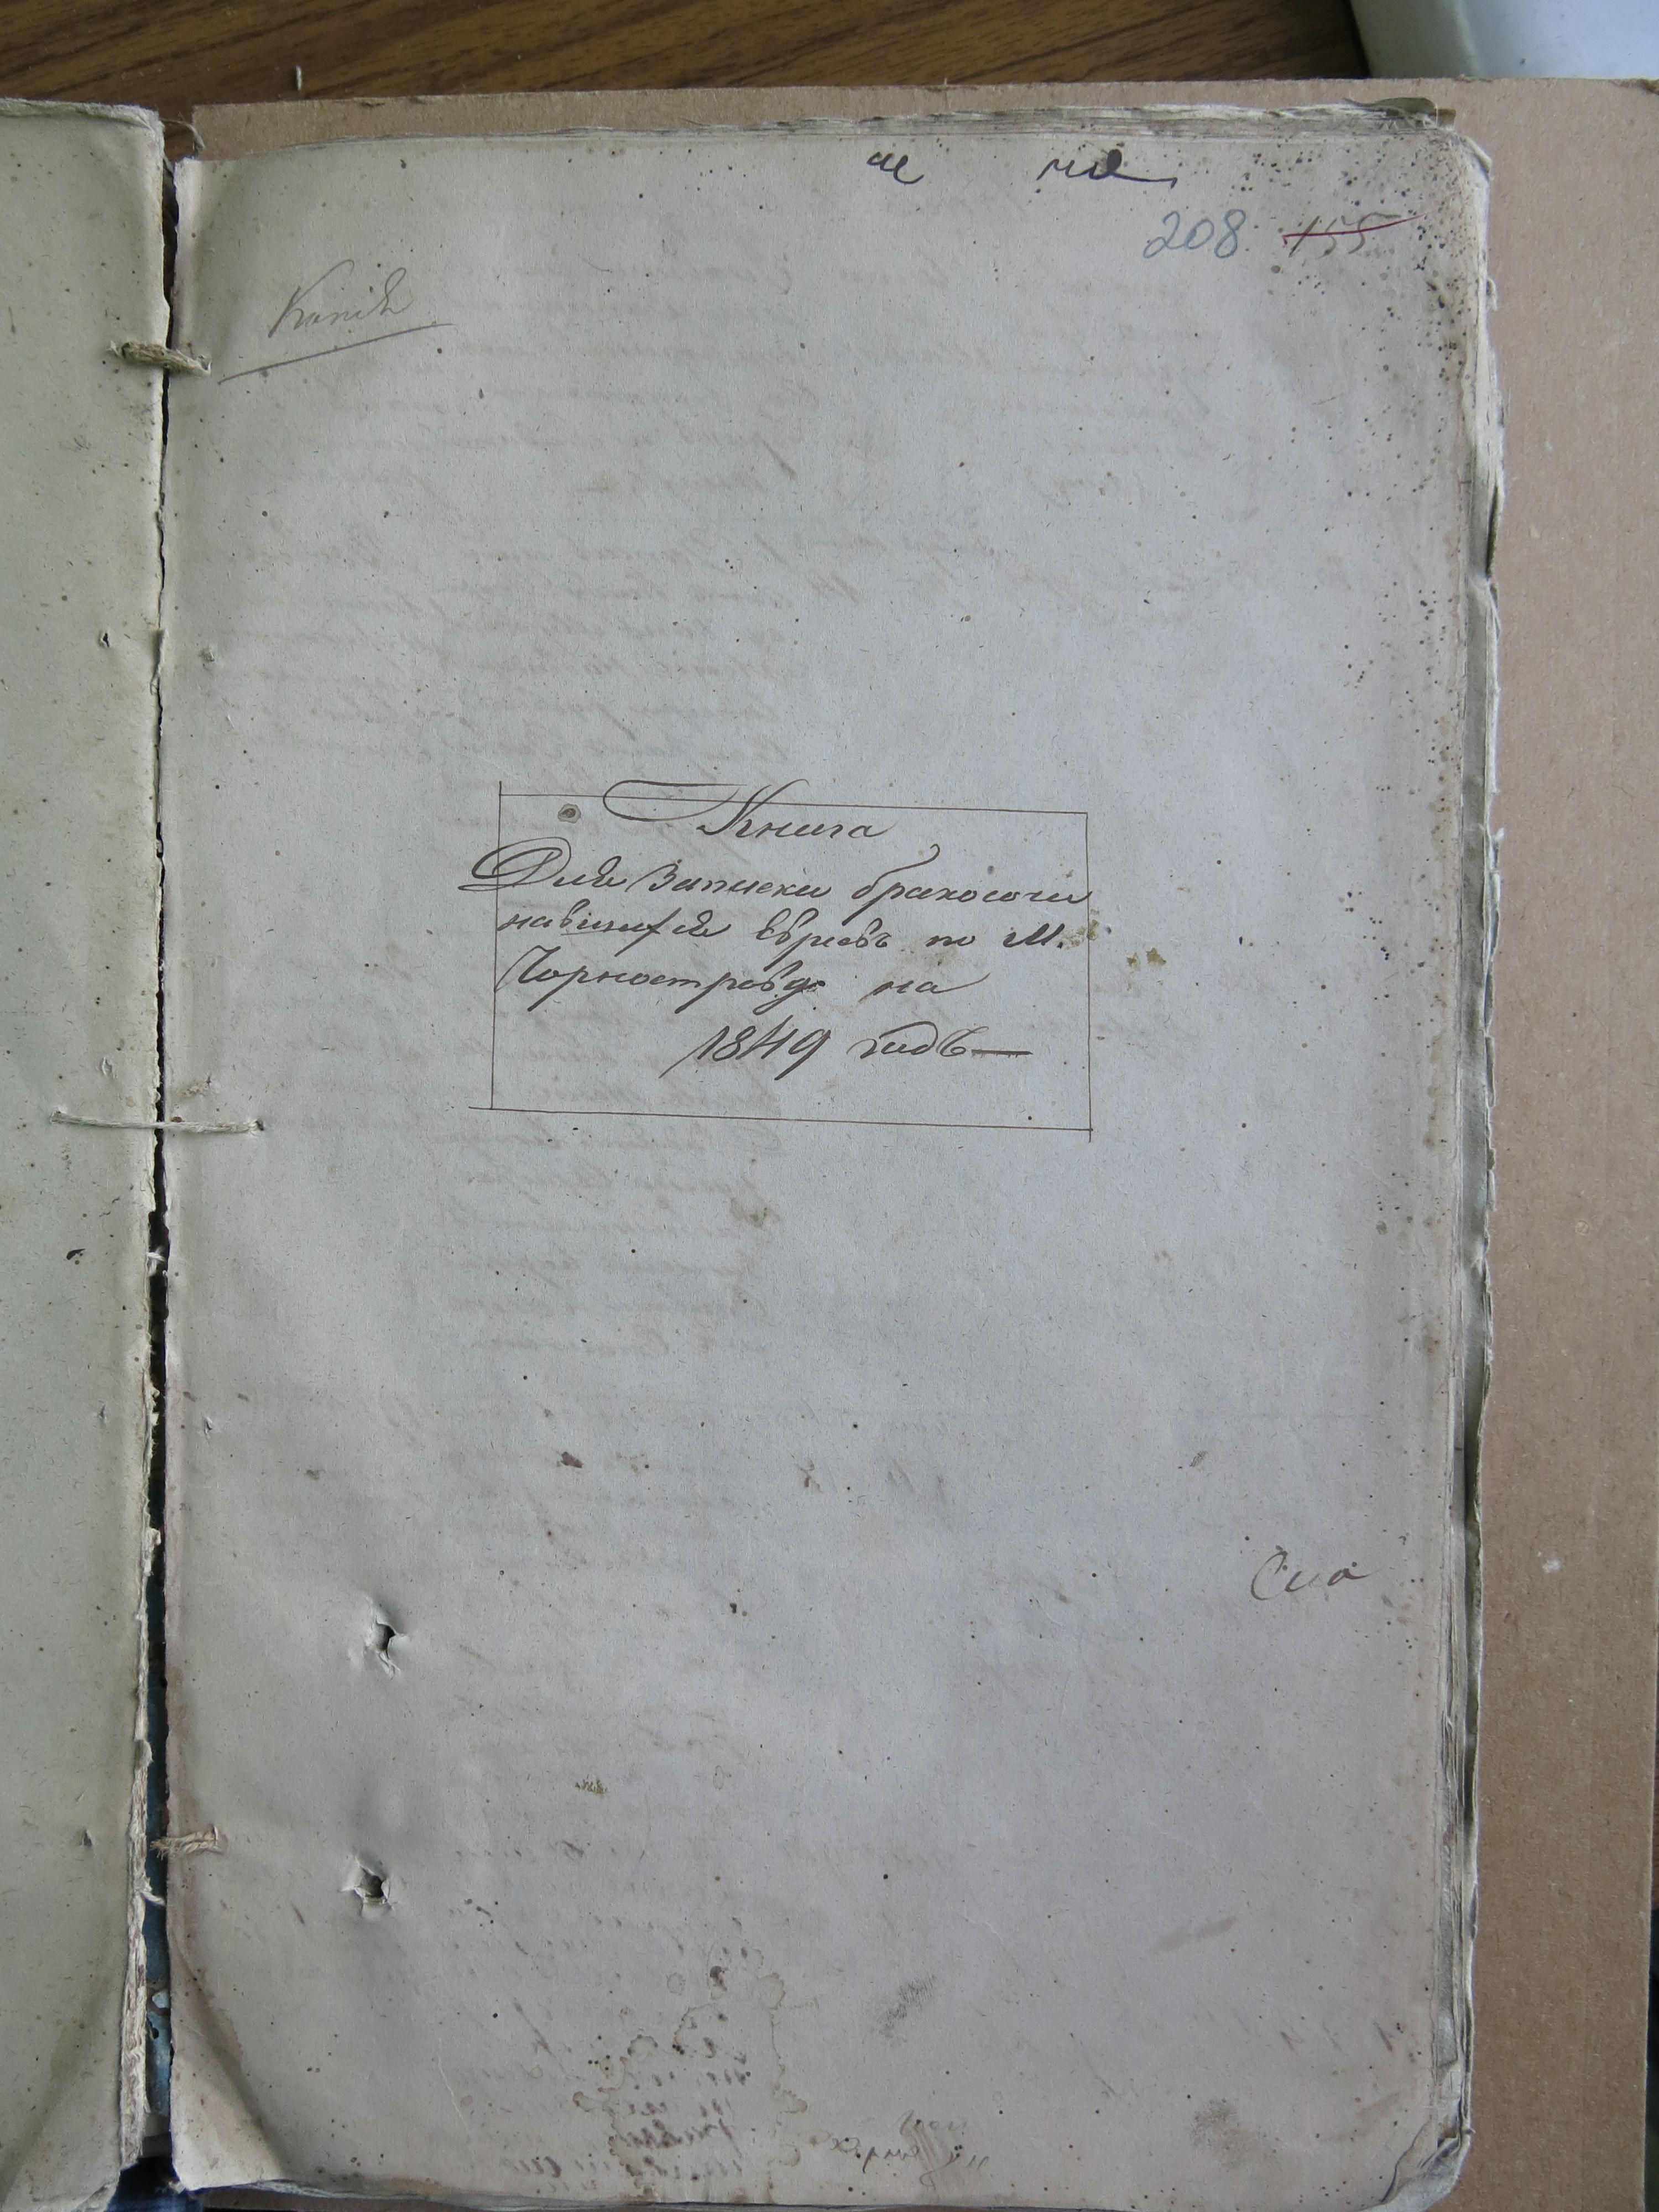 208. 155
Копія
Книга
Для Записки бракосочи
навшихся Евреевъ по М.
Чорноострову на
1849 годъ